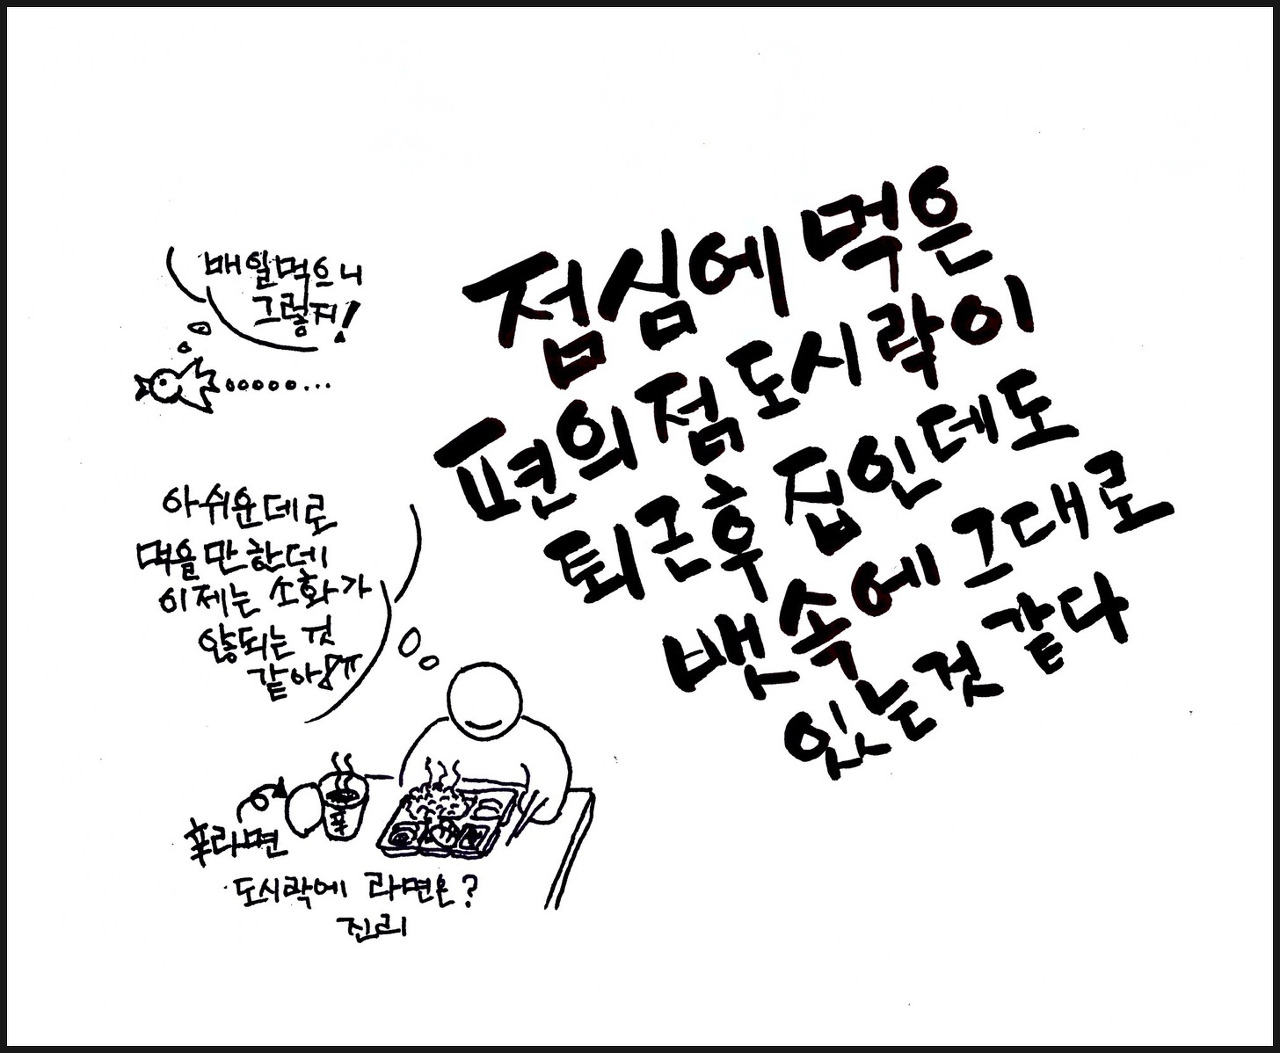 점심에 먹은
편의점 도시락이
퇴근후 집인데도
뱃속에 그대로
있는것 같다
매일먹으니
그렇지!
아쉬운데로
먹을만한데
이제는 소화가
않되는 것
같아ㅠㅠ
辛라면
辛
도시락에 라면은?
진리